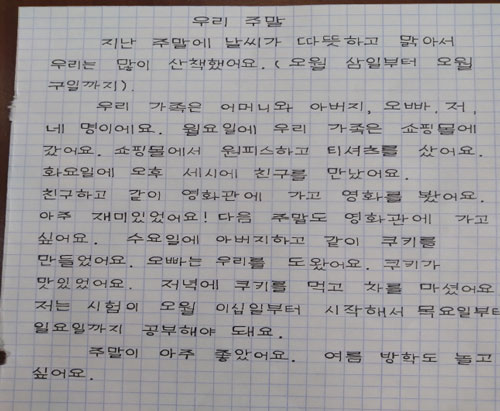 우리 주말
지난 주말에 날씨가 따뜻하고 맑아서
우리는 많이 산책했어요. (오월 삼일부터 오월
구일까지).
우리 가족은 어머니와 아버지, 오빠. 저,
네 명이에요. 월요일에 우리 가족은 쇼핑몰에
갔어요. 쇼핑몰에서 원피스하고 티셔츠를 샀어요.
화요일에 오후 세시에 친구를 만났어요.
친구하고 같이 영화관에 가고 영화를 봤어요.
아주 재미있었어요! 다음 주말도 영화관에 가고
싶어요. 수요일에 아버지하고 같이 쿠키를
만들었어요. 오빠는 우리를 도왔어요. 쿠키가
맛있었어요. 저녁에 쿠키를 먹고 차를 마셨어요
저는 시험이 오월 이십일부터 시작해서 목요일부터
일요일까지 공부해야 돼요.
주말이 아주 좋았어요. 여름 방학도 놀고
싶어요.